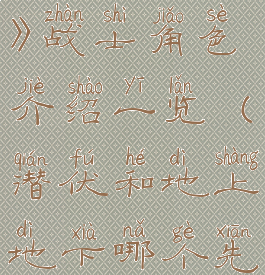 zhàn shì jiǎo sè
》战士角色
jiè shào yī lǎn
介绍一览(
qián fú hé dì shàng
潜伏和地上
dì xià nǎ gè xiān
地下哪个先